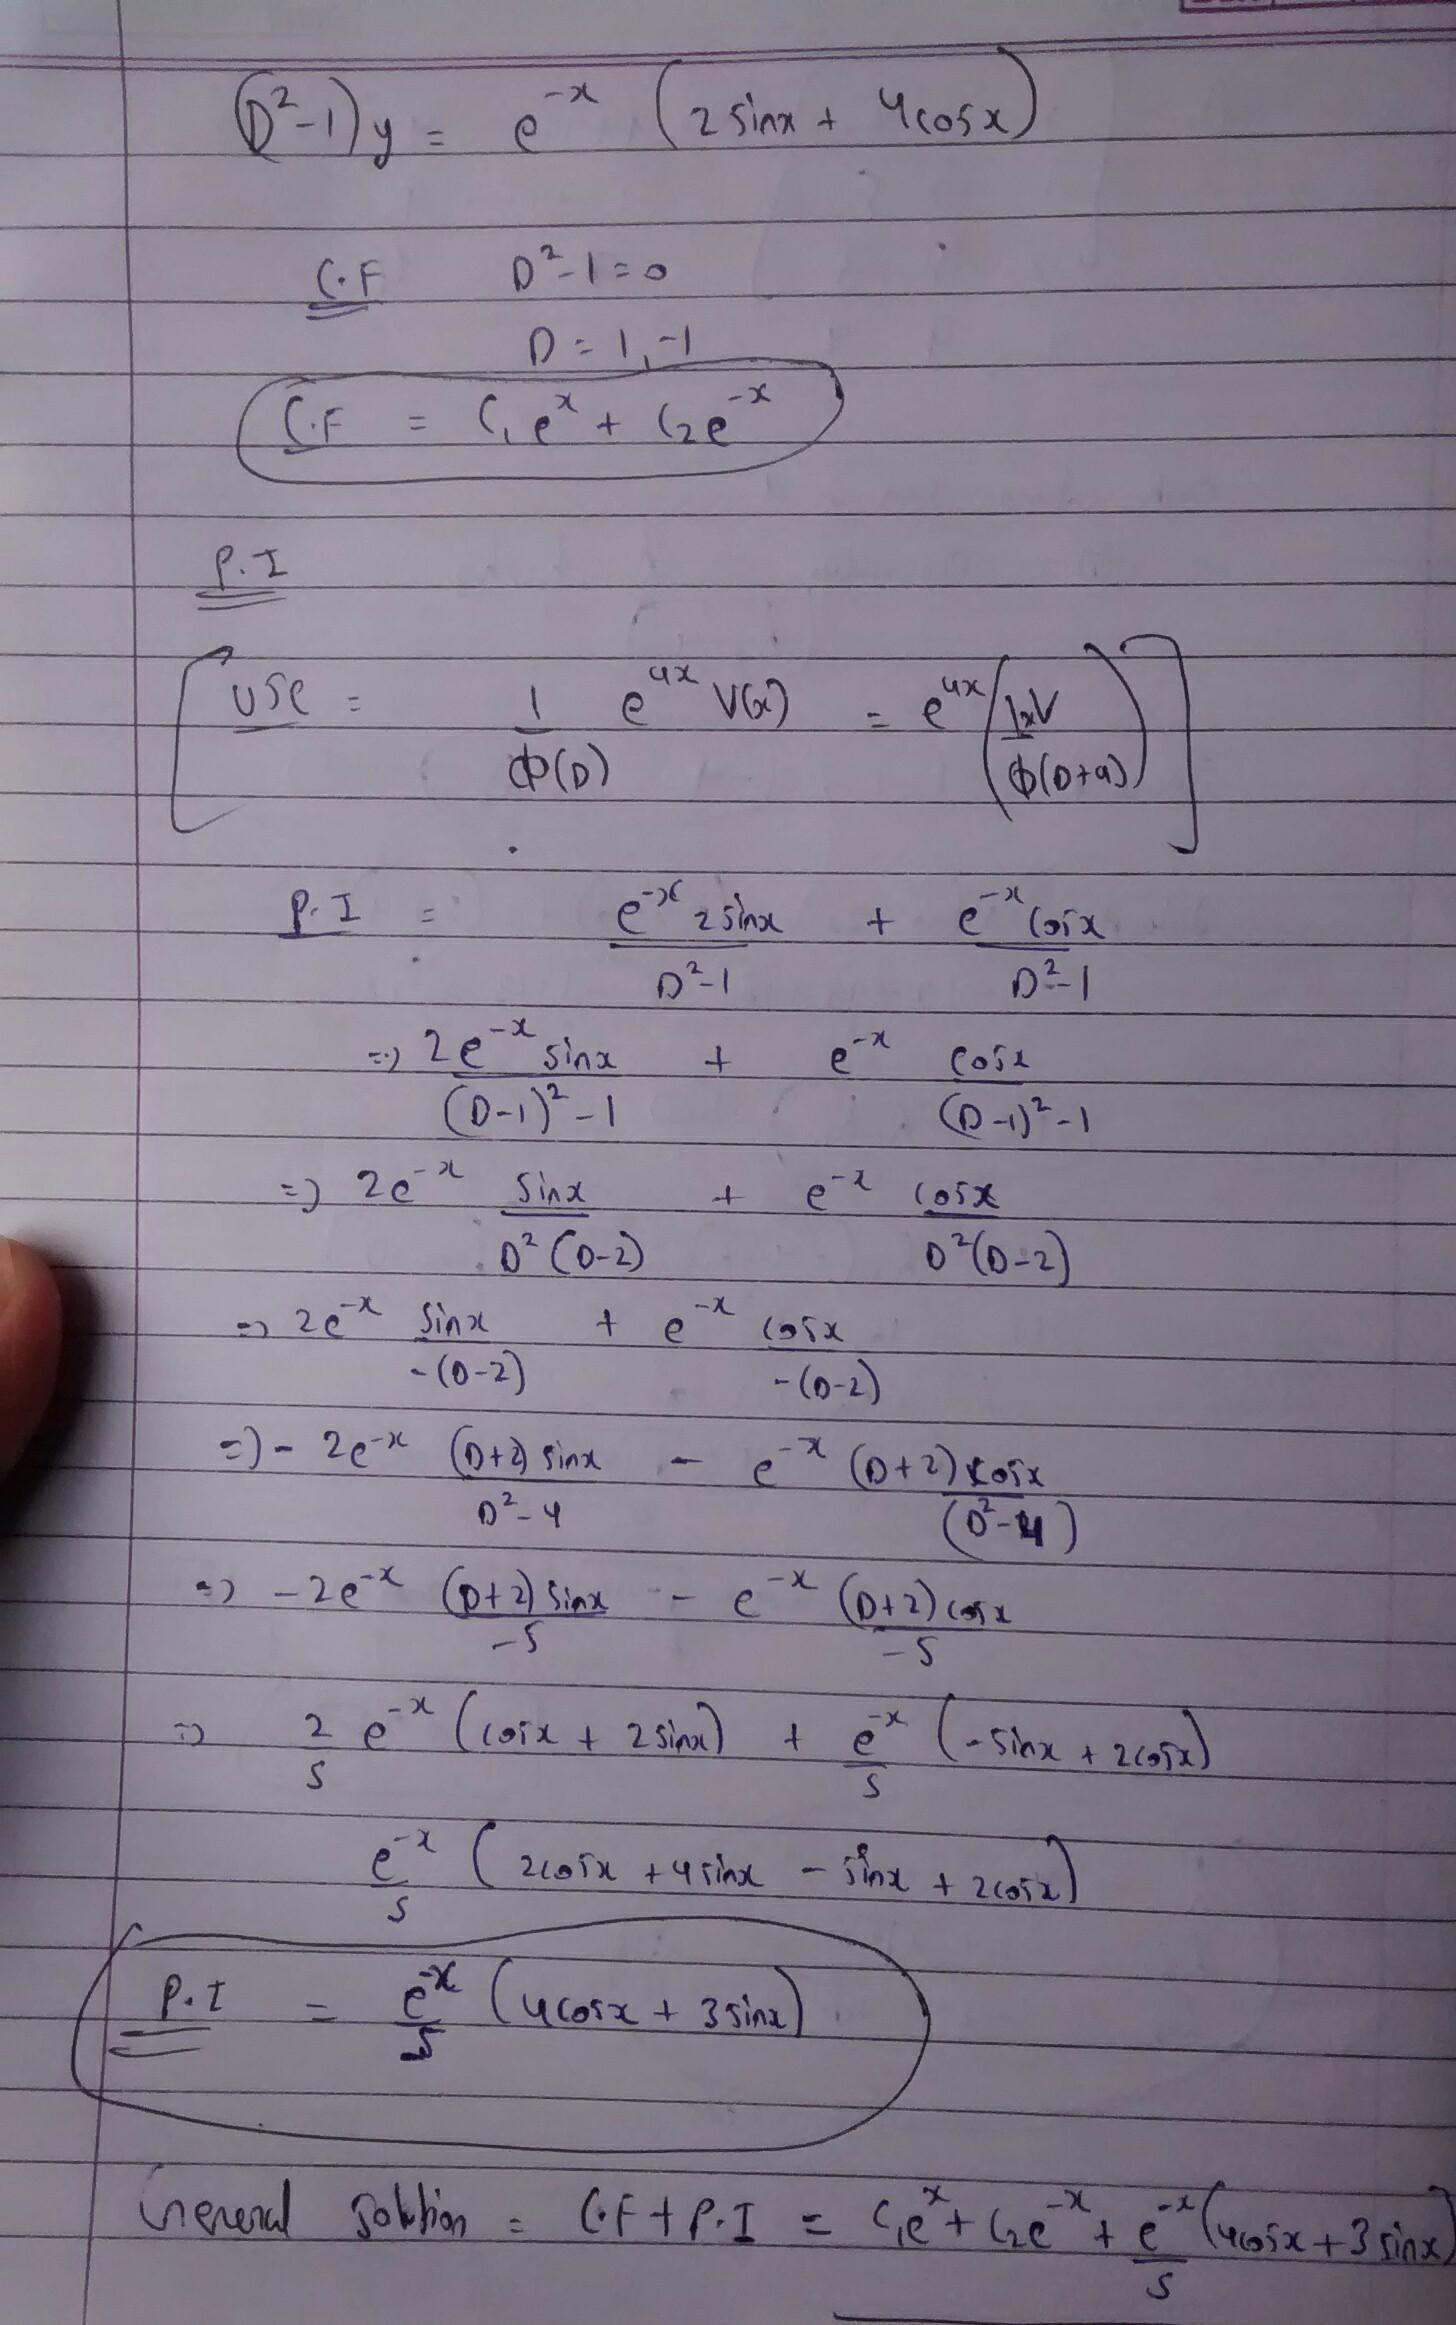 (D²-1)y = e^-x (2 sinx + 4cosx)
C.F D²-1=0
D = 1,-1
C.F = C₁e^x + C₂e^-x
P.I
use = 1/ϕ(D) e^ax V(x) = e^ax (1xV/ϕ(D+a))
P.I = e^-x 2sinx/D²-1 + e^-x cosx/D²-1
=> 2e^-x sinx/(D-1)²-1 + e^-x cosx/(D-1)²-1
=> 2e^-x sinx/D²(D-2) + e^-x cosx/D²(D-2)
=> 2e^-x sinx/-(D-2) + e^-x cosx/-(D-2)
=> - 2e^-x (D+2) sinx/D²-4 - e^-x (D+2) cosx/(D²-4)
=> -2e^-x (D+2) sinx/-5 - e^-x (D+2) cosx/-5
=> 2/5 e^-x (cosx + 2sinx) + e^-x/5 (-sinx + 2cosx)
e^-x/5 (2cosx + 4sinx - sinx + 2cosx)
P.I = e^-x/5 (4cosx + 3sinx)
General solution = C.F + P.I = C₁e^x + C₂e^-x + e^-x/5 (4cosx + 3sinx)